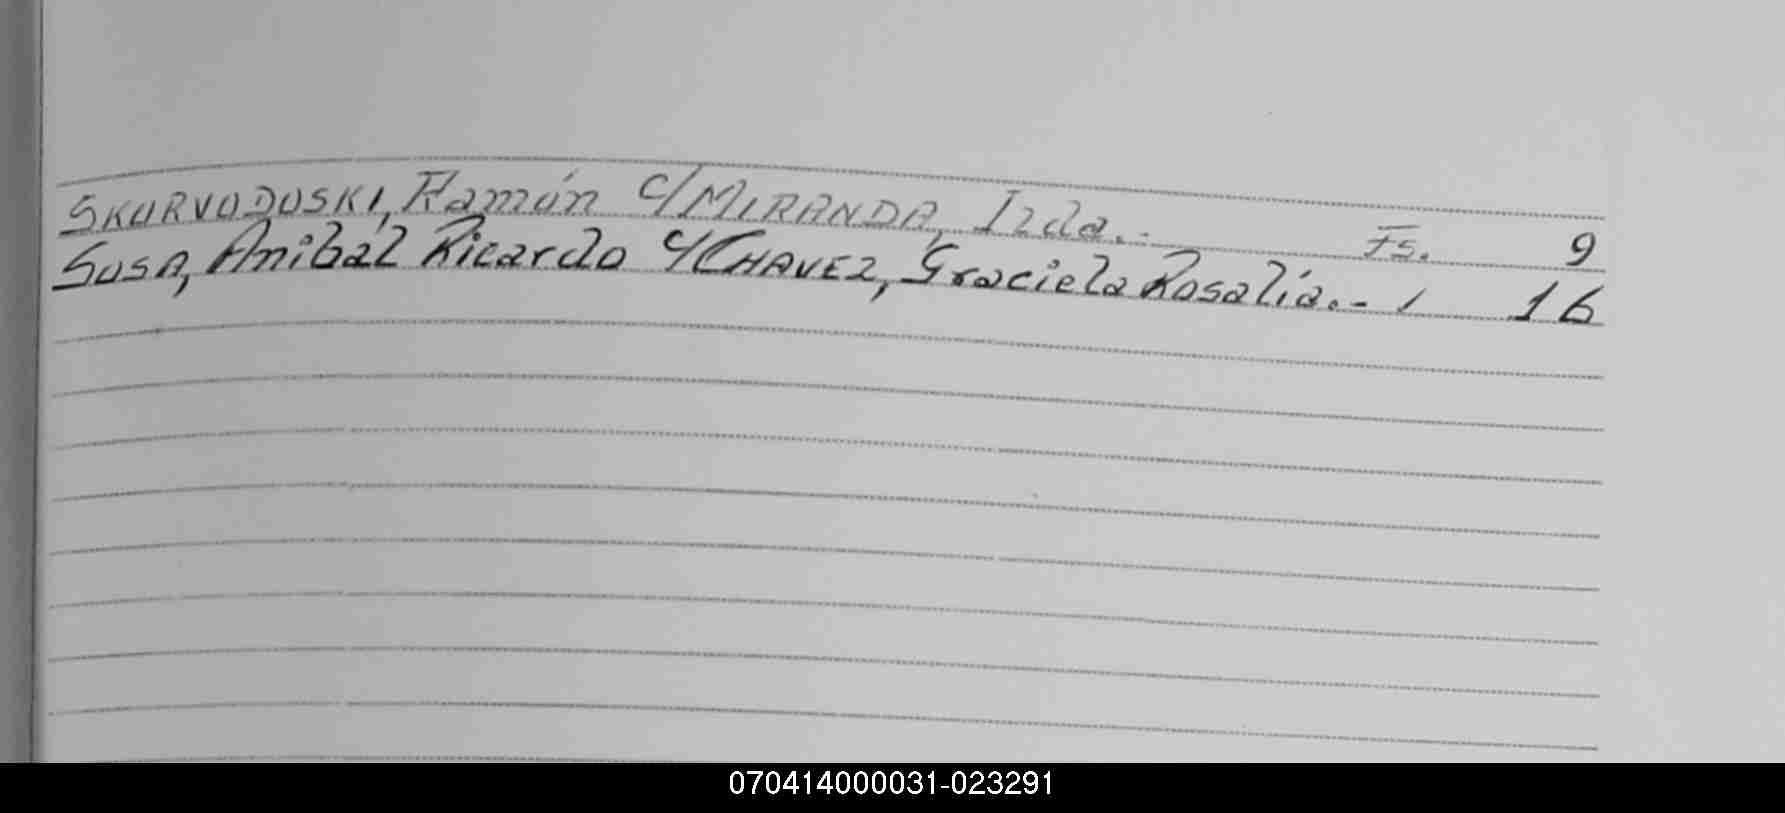 SKURVODUSKI, Ramón c/MIRANDA, Ilda.- Fs. 9
SUSA, Anibál Ricardo c/CHAVEZ, Graciela Rosalía.- / 16
070414000031-023291